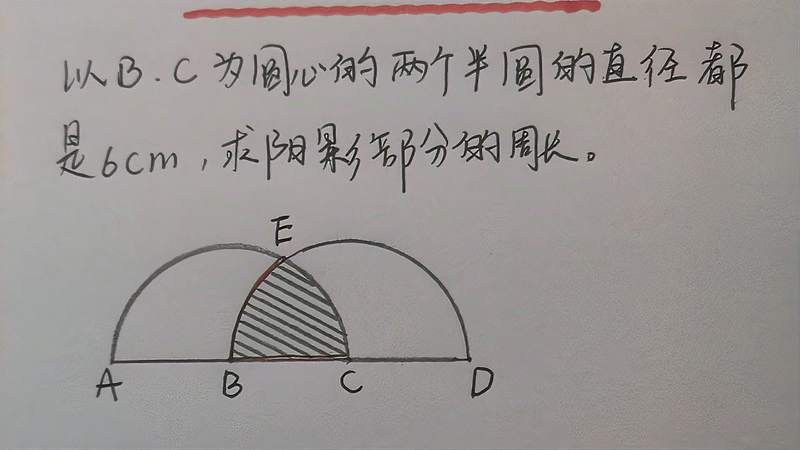 以B.C为圆心的两个半圆的直径都
是6cm，求阴影部分的周长。
E
A B C D